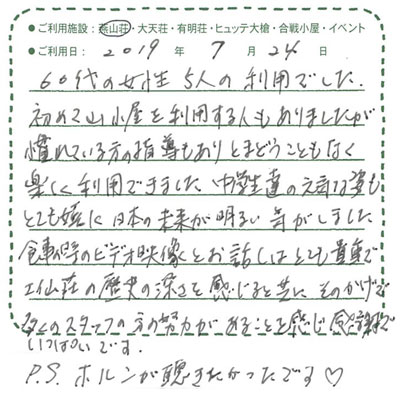 ●ご利用施設：燕山荘・大天荘・有明荘・ヒュッテ大槍・合戦小屋・イベント
●ご利用日：2019年7月24日
60代の女性5人の利用でした.
初めて山小屋を利用する人もありましたが
慣れている方の指導もありとまどうこともなく
楽しく利用できました. 中学生達の元気な姿も
とても嬉に日本の未来が明るい気がしました
食事の時のビデオ映像とお話しはとても貴重で
山荘の歴史の深さを感じると共に そのかげで
多くのスタッフの方の努力があることを感じ感謝で
いっぱいです.
P.S. ホルンが聴きたかったです♡